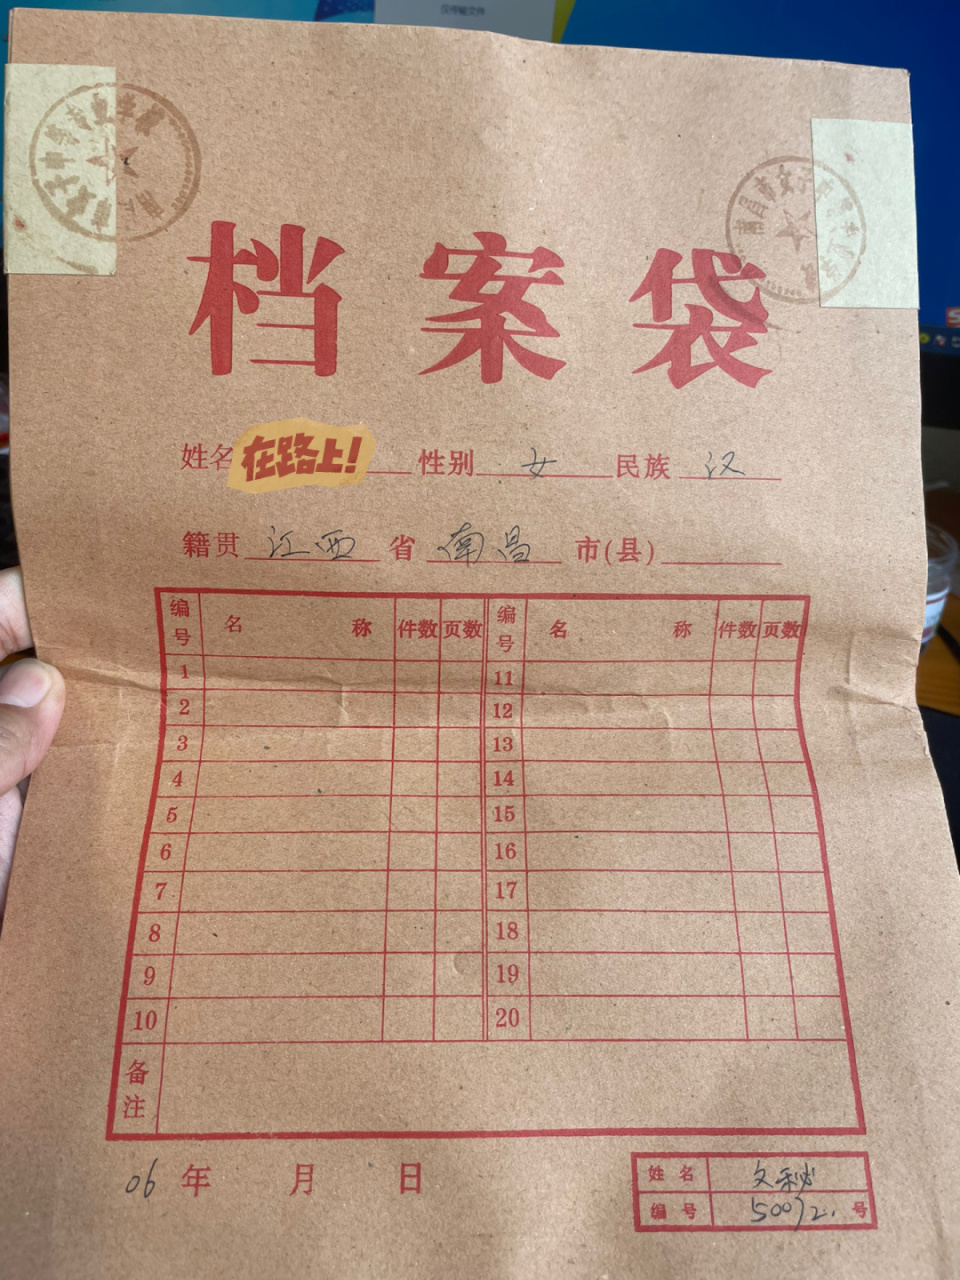 仅传输文件
档案袋
姓名 在路上! 性别 女 民族 汉
籍贯 江西 省 南昌 市(县)
编号 名称 件数 页数 编号 名称 件数 页数
1 11
2 12
3 13
4 14
5 15
6 16
7 17
8 18
9 19
10 20
备注
06 年 月 日
姓名 文秘
编号 号